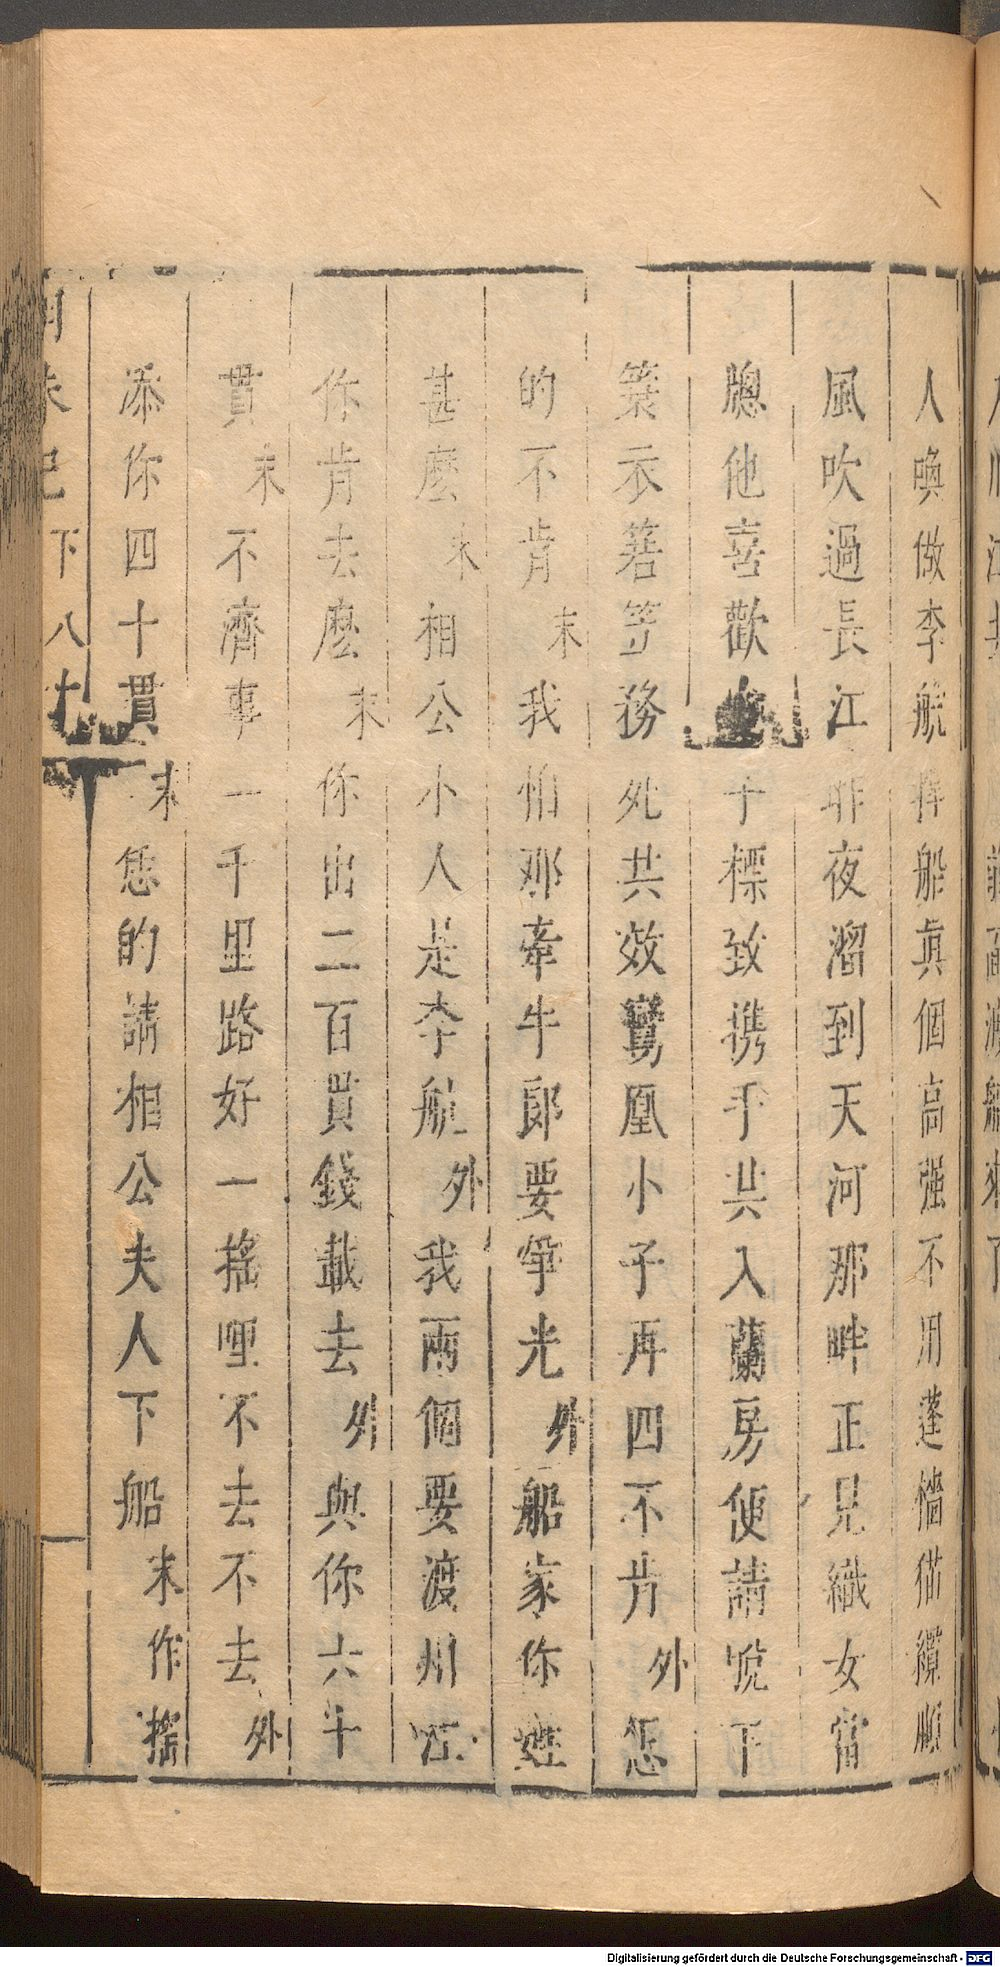 人喚做李航撑船真個高强不用蓬檣猫纜順
風吹過長江昨夜溜到天河那畔正見織女當
牕他喜歡 于標致携手共入蘭房便請脫下
簑衣箬笠務 共效鸞凰小子再四不肯外怎
的不肯末我怕那牽牛郎要爭光外船家你姓
甚麽末相公小人是李航外我兩個要渡州江
你肯去麽末你出二百貫錢載去外與你六十
貫末不濟事一千里路好一搖哩不去不去外
添你四十貫末恁的請相公夫人下船末作搖
記下 八十
Digitalisierung gefördert durch die Deutsche Forschungsgemeinschaft - DFG